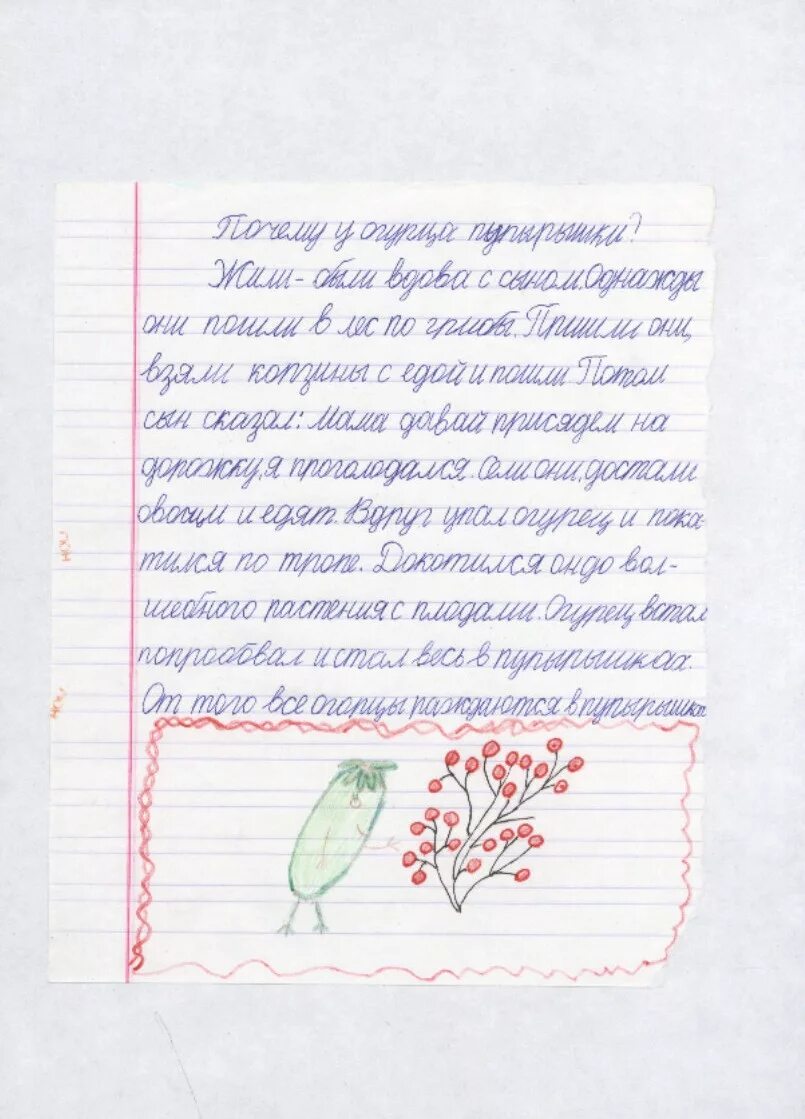 Почему у огурца пупырышки?
Жили-были вдова с сыном. Однажды
они пошли в лес по грибы. Пришли они,
взяли корзины с едой и пошли. Потом
сын сказал: Мама давай присядем на
дорожку, я проголодался. Сели они, достали
овощи и едят. Вдруг упал огурец и пока-
тился по тропе. Докотился он до вол-
шебного растения с плодами. Огурец встал
попробовал и стал весь в пупырышках.
От того все огорцы раждаются в пупырышках